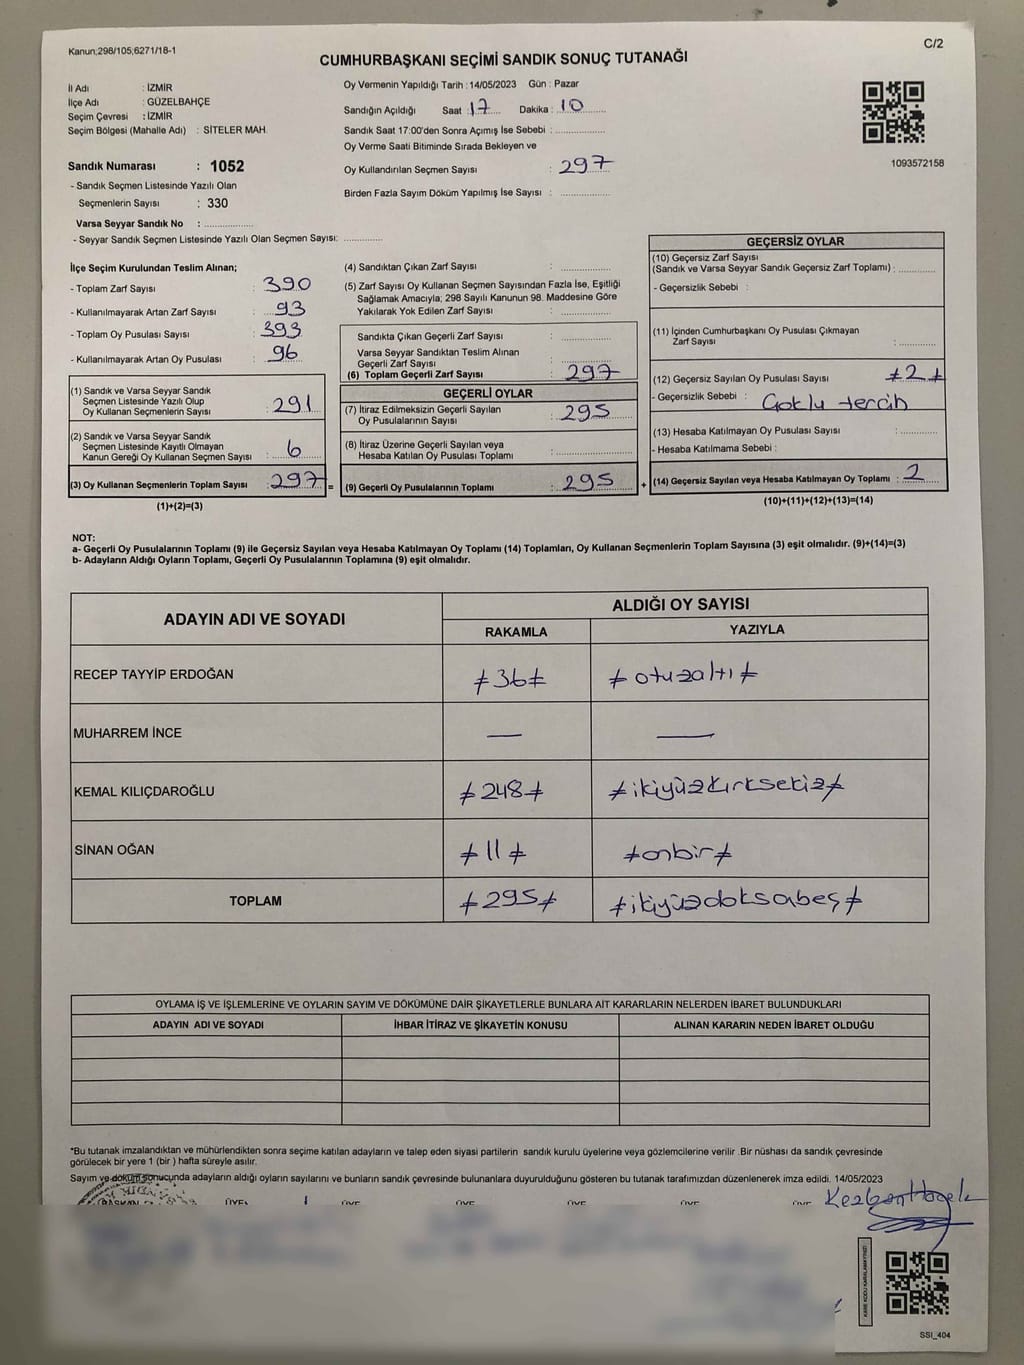 Kanun;298/105;6271/18-1
C/2
CUMHURBAŞKANI SEÇİMİ SANDIK SONUÇ TUTANAĞI
İl Adı : İZMİR
İlçe Adı : GÜZELBAHÇE
Seçim Çevresi : İZMİR
Seçim Bölgesi (Mahalle Adı) : SİTELER MAH.
Sandık Numarası : 1052
- Sandık Seçmen Listesinde Yazılı Olan
Seçmenlerin Sayısı : 330
Varsa Seyyar Sandık No : ..............
- Seyyar Sandık Seçmen Listesinde Yazılı Olan Seçmen Sayısı: ............
Oy Vermenin Yapıldığı Tarih :14/05/2023 Gün : Pazar
Sandığın Açıldığı Saat : 17 Dakika : 10
Sandık Saat 17:00'den Sonra Açımış İse Sebebi : ..............
Oy Verme Saati Bitiminde Sırada Bekleyen ve
Oy Kullandırılan Seçmen Sayısı : 297
Birden Fazla Sayım Döküm Yapılmış İse Sayısı : ..............
1093572158
İlçe Seçim Kurulundan Teslim Alınan;
- Toplam Zarf Sayısı : 390
- Kullanılmayarak Artan Zarf Sayısı : 93
- Toplam Oy Pusulası Sayısı : 393
- Kullanılmayarak Artan Oy Pusulası : 96
(1) Sandık ve Varsa Seyyar Sandık
Seçmen Listesinde Yazılı Olup
Oy Kullanan Seçmenlerin Sayısı : 291
(2) Sandık ve Varsa Seyyar Sandık
Seçmen Listesinde Kayıtlı Olmayan
Kanun Gereği Oy Kullanan Seçmen Sayısı : 6
(3) Oy Kullanan Seçmenlerin Toplam Sayısı : 297 =
(1)+(2)=(3)
(4) Sandıktan Çıkan Zarf Sayısı : ..............
(5) Zarf Sayısı Oy Kullanan Seçmen Sayısından Fazla İse, Eşitliği
Sağlamak Amacıyla; 298 Sayılı Kanunun 98. Maddesine Göre
Yakılarak Yok Edilen Zarf Sayısı : ..............
Sandıkta Çıkan Geçerli Zarf Sayısı : ..............
Varsa Seyyar Sandıktan Teslim Alınan
Geçerli Zarf Sayısı : ..............
(6) Toplam Geçerli Zarf Sayısı : 297
GEÇERLİ OYLAR
(7) İtiraz Edilmeksizin Geçerli Sayılan
Oy Pusulalarının Sayısı : 295
(8) İtiraz Üzerine Geçerli Sayılan veya
Hesaba Katılan Oy Pusulası Toplamı : ..............
(9) Geçerli Oy Pusulalarının Toplamı : 295 +
GEÇERSİZ OYLAR
(10) Geçersiz Zarf Sayısı
(Sandık ve Varsa Seyyar Sandık Geçersiz Zarf Toplamı) : ..........
- Geçersizlik Sebebi :
(11) İçinden Cumhurbaşkanı Oy Pusulası Çıkmayan
Zarf Sayısı : ..........
(12) Geçersiz Sayılan Oy Pusulası Sayısı : ≠2≠
- Geçersizlik Sebebi : Çoklu tercih
(13) Hesaba Katılmayan Oy Pusulası Sayısı : ..........
- Hesaba Katılmama Sebebi :
(14) Geçersiz Sayılan veya Hesaba Katılmayan Oy Toplamı : 2
(10)+(11)+(12)+(13)=(14)
NOT:
a- Geçerli Oy Pusulalarının Toplamı (9) ile Geçersiz Sayılan veya Hesaba Katılmayan Oy Toplamı (14) Toplamları, Oy Kullanan Seçmenlerin Toplam Sayısına (3) eşit olmalıdır. (9)+(14)=(3)
b- Adayların Aldığı Oyların Toplamı, Geçerli Oy Pusulalarının Toplamına (9) eşit olmalıdır.
ADAYIN ADI VE SOYADI
ALDIĞI OY SAYISI
RAKAMLA YAZIYLA
RECEP TAYYİP ERDOĞAN ≠36≠ ≠otuzaltı≠
MUHARREM İNCE — —
KEMAL KILIÇDAROĞLU ≠248≠ ≠ikiyüzkırksekiz≠
SİNAN OĞAN ≠11≠ ≠onbir≠
TOPLAM ≠295≠ ≠ikiyüzdoksabeş≠
OYLAMA İŞ VE İŞLEMLERİNE VE OYLARIN SAYIM VE DÖKÜMÜNE DAİR ŞİKAYETLERLE BUNLARA AİT KARARLARIN NELERDEN İBARET BULUNDUKLARI
ADAYIN ADI VE SOYADI İHBAR İTİRAZ VE ŞİKAYETİN KONUSU ALINAN KARARIN NEDEN İBARET OLDUĞU
*Bu tutanak imzalandıktan ve mühürlendikten sonra seçime katılan adayların ve talep eden siyasi partilerin sandık kurulu üyelerine veya gözlemcilerine verilir .Bir nüshası da sandık çevresinde
görülecek bir yere 1 (bir ) hafta süreyle asılır.
Sayım ve döküm sonucunda adayların aldığı oyların sayılarını ve bunların sandık çevresinde bulunanlara duyurulduğunu gösteren bu tutanak tarafımızdan düzenlenerek imza edildi. 14/05/2023
BAŞKAN ÜYE ÜYE ÜYE ÜYE ÜYE ÜYE
KARE KODU KARALAMAYINIZ!
SSI_404